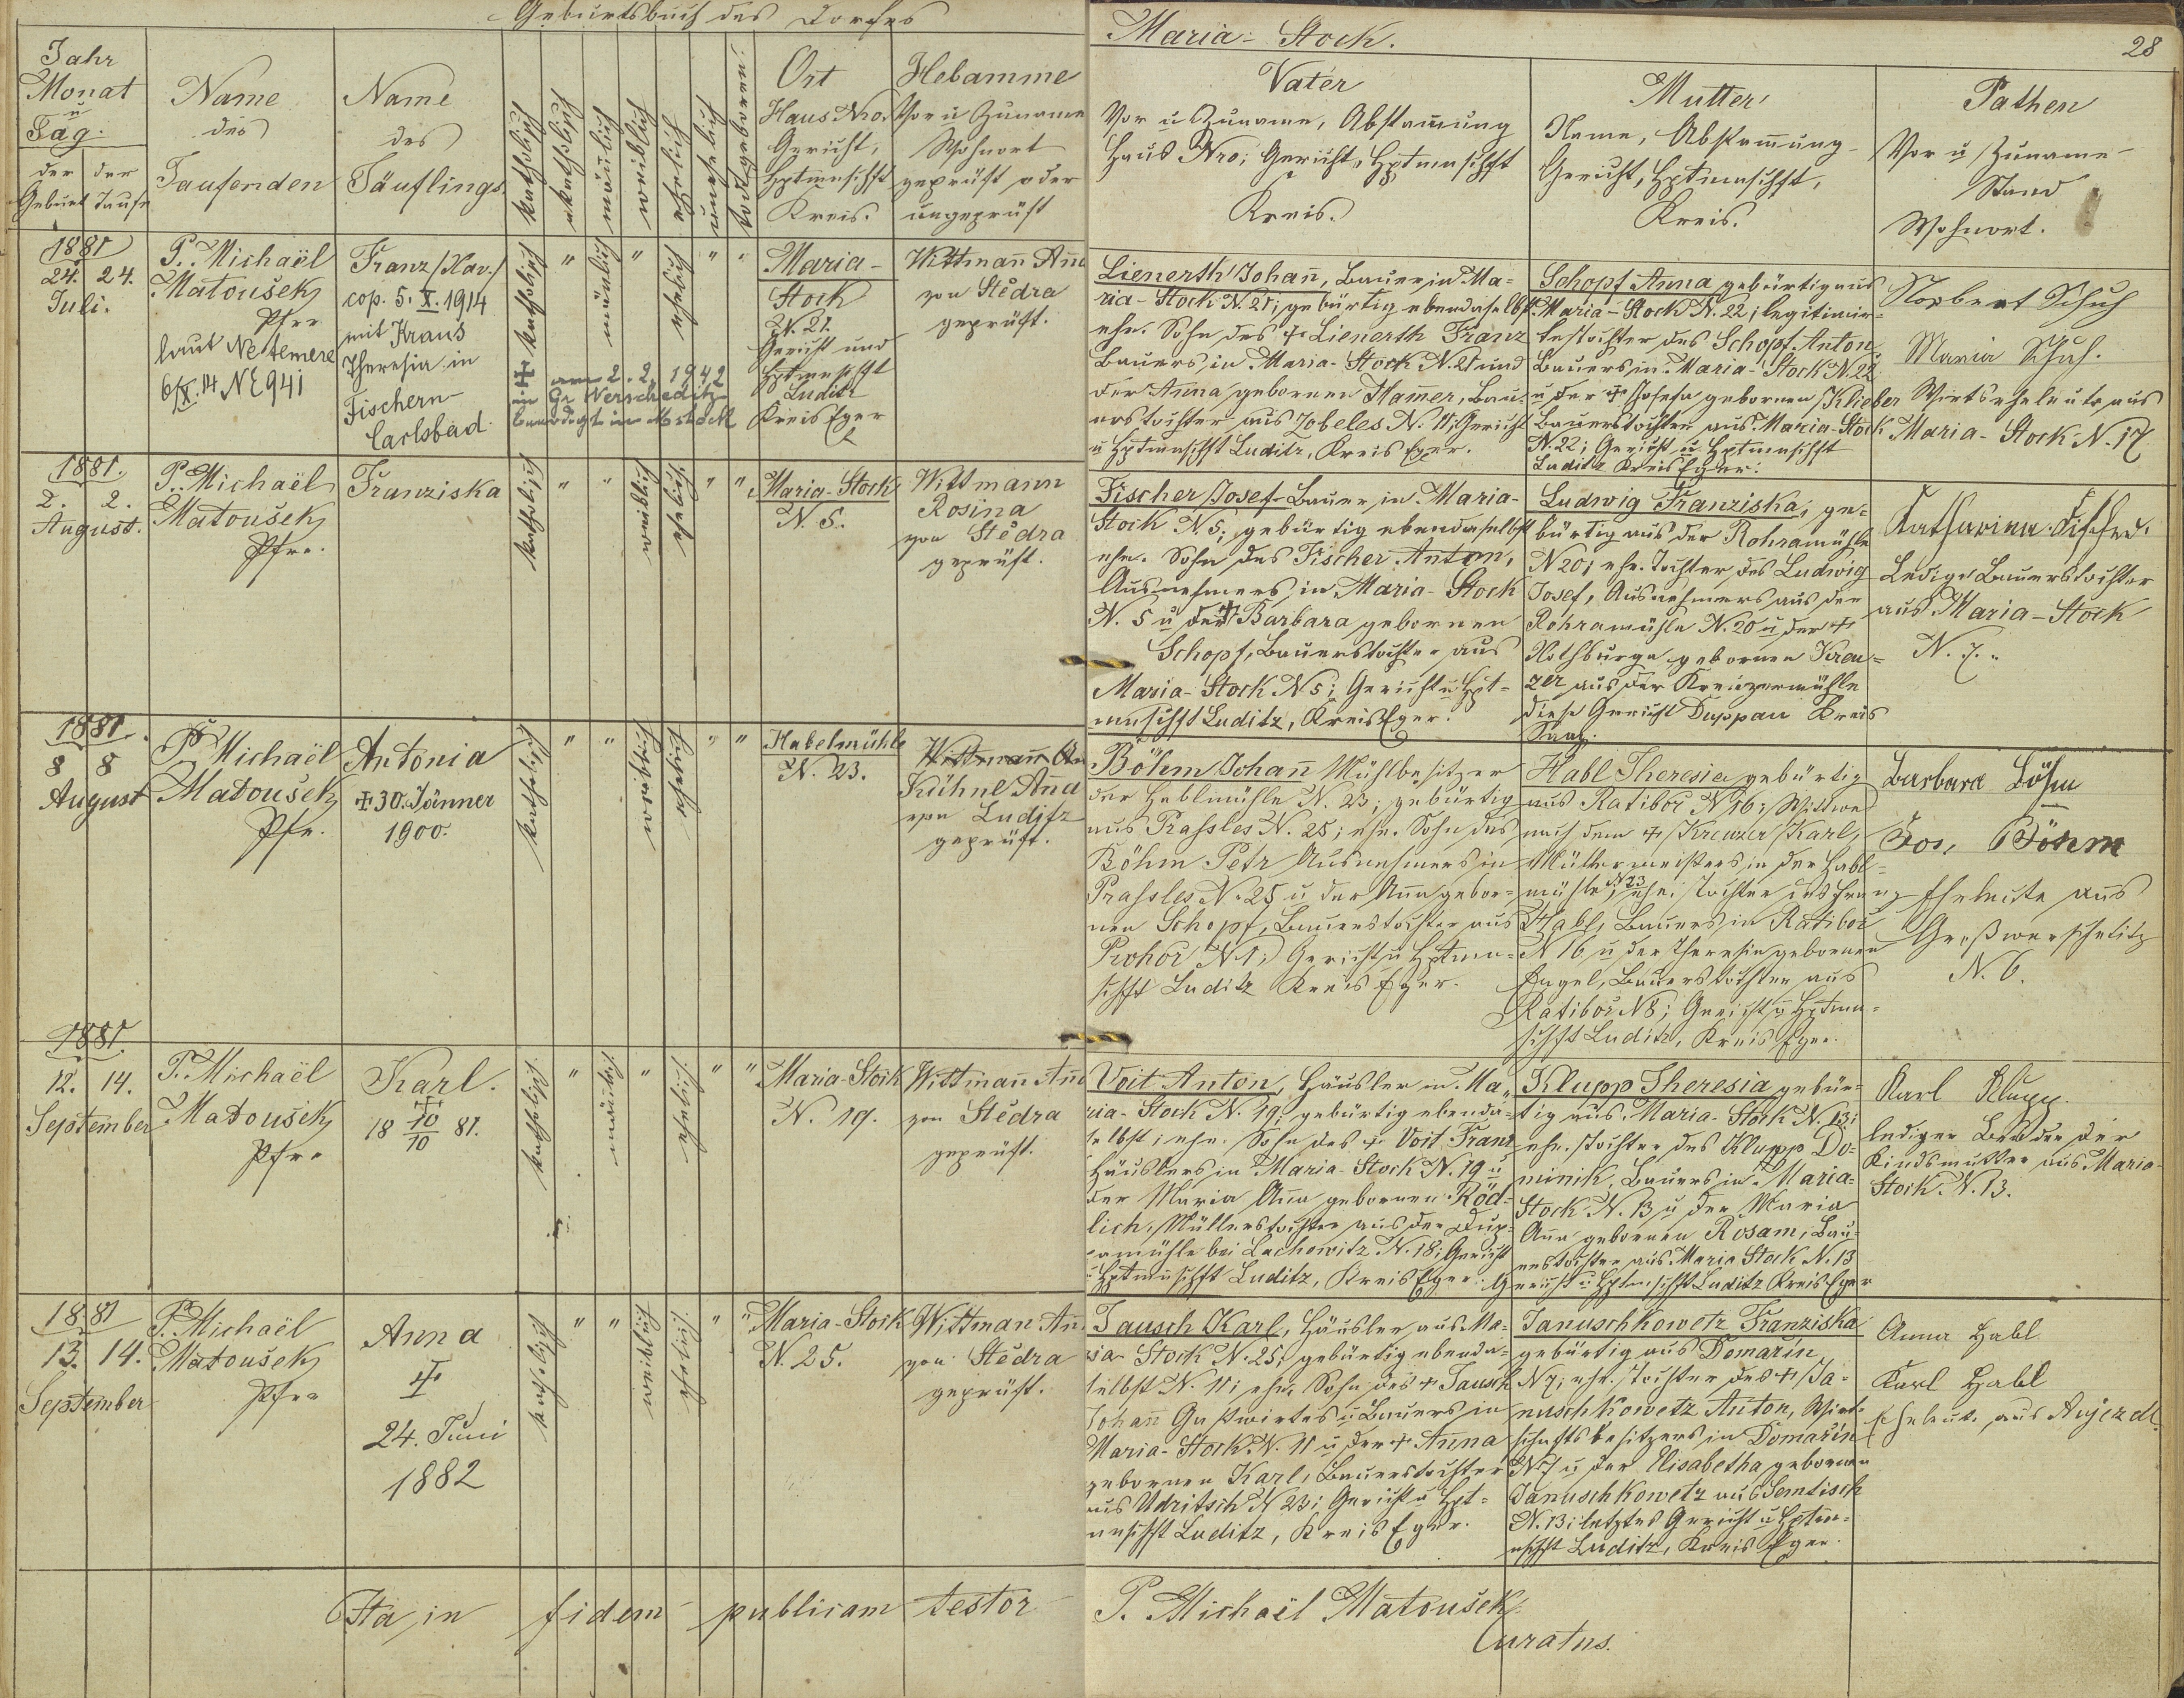 Geburtsbuch des Dorfes
Maria-Stock.
28
Jahr
Monat
u
Tag.
der Geburt
der Taufe
Name
des
Taufenden
Name
des
Täuflings
katholisch
akatholisch
mänlich
weiblich
ehelich
unehelich
todtgeboren
Ort
Haus Nro.
Gericht,
Hptmnschft
Kreis.
Hebamme
Vor u Zuname
Wohnort
geprüft oder
ungeprüft
Vater
Vor u Zuname, Abstamung
Haus Nro; Gericht, Hptmnschft
Kreis.
Mutter
Name, Abstamung
Gericht, Hptmnschft,
Kreis.
Pathen
Vor u Zuname
Stand
Wohnort.
1881
24. 24.
Juli.
P. Michaël
Matoušek
Pfrr
laut Ne temere
6/X. 14 NE 941
Franz /Xav./
cop. 5. X. 1914
mit Kraus
Theresia in
Fischern-
Carlsbad.
katholisch
"
mänlich
"
ehelich
"
"
✝ am 2. 2. 1942
in Gr Werscheditz
beerdigt in Mstock
Maria-
Stock
N. 21.
Gericht und
Hptmnschft
Luditz
Kreis Eger
Wittmann Ana
von Stědra
geprüft.
Lienerth Johan, Bauer in Ma=
ria-Stock N. 21; gebürtig ebendaselbst
ehe. Sohn des + Lienerth Franz
Bauers, in Maria-Stock N. 21 und
der Anna gebornen Hamer, Bau=
erstochter aus Jobeles N. 11; Gericht
u Hptmnschft Luditz, Kreis Eger.
Schopf Anna gebürtig aus
Maria-Stock N. 22; legitimir=
te Tochter des Schopf Anton
Bauers in Maria-Stock N. 22
u der + Josefa gebornen Klieber
Bauerstochter aus Maria-Stock
N. 22; Gericht u Hptmnschft
Luditz Kreis Eger.
Norbert Schuh
Maria Schuh.
Wirtseheleute aus
Maria-Stock N. 17
1881.
2. 2.
August.
P. Michaël
Matoušek
Pfrr.
Franziska
katholisch
"
"
weiblich
ehelich
"
"
Maria-Stock
N. 5.
Wittmann
Rosina
von Stědra
geprüft.
Fischer Josef Bauer, in Maria-
Stock N. 5; gebürtig ebendaselbst
ehe. Sohn des Fischer Anton,
Ausnehmers, in Maria-Stock
N. 5 u der + Barbara gebornen
Schopf, Bauerstochter aus
Maria-Stock N 5; Gericht u Hpt=
mnschft Luditz, Kreis Eger.
Ludwig Franziska; ge=
bürtig aus der Rohramühle
N 20; ehe. Tochter des Ludwig
Josef, Ausnehmers aus der
Rohramühle N. 20 u der +
Nothburga gebornen Kreu=
zer aus der Kreuzermühle
diese Gericht Duppau Kreis
Saaz.
Katharina Fischer.
Ledige Bauerstochter
aus Maria-Stock
N. 7.
1881.
8 8
August
P. Michaël
Matoušek
Pfr.
Antonia
+ 30. Jänner
1900.
katholisch
"
"
weiblich
ehelich
"
"
Habelmühle
N. 23.
Wittmann An
Kühnl Ana
von Luditz
geprüft.
Böhm Johan Mühlbesitzer
der Hablmühle N. 23; gebürtig
aus Prassles N. 25; ehe. Sohn des
Böhm Petr Ausnehmers in
Prassles N. 25 u der Ana gebor=
nen Schopf, Bauerstochter aus
Prohoř N 1; Gericht u Hptmn=
schft Luditz Kreis Eger.
Habl Theresia gebürtig
aus Ratiboř N 16; Wittwe
nach dem + Kreuzer Karl,
Müllermeisters in der Habl=
mühle N 23; ehe. Tochter des Franz
Habl, Bauers in Ratiboř
N 16 u der Theresia gebornen
Engel, Bauerstochter aus
Ratiboř N 8; Gericht u Hptmn=
schft Luditz, Kreis Eger.
Barbara Böhm
Jos. Böhm
Eheleute aus
Großwerscheditz
N. 6.
1881.
12. 14.
September
P. Michaël
Matoušek
Pfrr
Karl.
+
18 10/10 81.
katholisch
"
mänlich
"
ehelich
"
"
Maria-Stock
N. 19.
Wittman Ana
von Stědra
geprüft.
Voit Anton, Häusler in Ma=
ria-Stock N. 19; gebürtig ebenda=
selbst; ehe. Sohn des + Voit Franz
Häuslers in Maria-Stock N. 19 u
der Maria Ana gebornen Röd=
lich, Müllerstochter aus der Dup=
amühle bei Lachowitz N. 18; Gericht
u Hptmnschft Luditz, Kreis Eger.
Klupp Theresia gebür=
tig aus Maria-Stock N. 13;
ehe. Tochter des Klupp Do=
minik, Bauers in Maria=
Stock N. 13 u der Maria
Ana gebornen Rosam, Bau=
erstochter aus Maria Stock N. 13
Gericht u Hptmnschft Luditz Kreis Eger
Karl Klupp.
lediger Bruder der
Kindsmutter aus Maria-
Stock N. 13.
1881
13. 14.
September
P. Michaël
Matoušek
Pfrr
Anna
+
24. Juni
1882
katholisch
"
"
weiblich
ehelich
"
"
Maria-Stock
N. 25.
Wittman An
von Stědra
geprüft.
Tausch Karl, Häusler aus Ma=
ria-Stock N. 25; gebürtig ebenda=
selbst N. 11; ehe. Sohn des + Tausch
Johan Gastwirtes u Bauers in
Maria-Stock N. 11 u der + Anna
gebornen Karl, Bauerstochter
aus Udritsch N 23; Gericht u Hpt=
mnschft Luditz, Kreis Eger.
Januschkowetz Franziska
gebürtig aus Domařin
N 7; ehe. Tochter des + Ja=
nuschkowetz Anton, Wirt=
schaftsbesitzers in Domařin
N 7 u der Elisabetha gebornen
Januschkowetz aus Semtisch
N. 13; letztes Gericht u Hptm=
nschft Luditz, Kreis Eger.
Anna Habl
Karl Habl
Eheleute aus Aujezdl.
Ita in fidem publicam testor
P. Michaël Matoušek
Curatus.